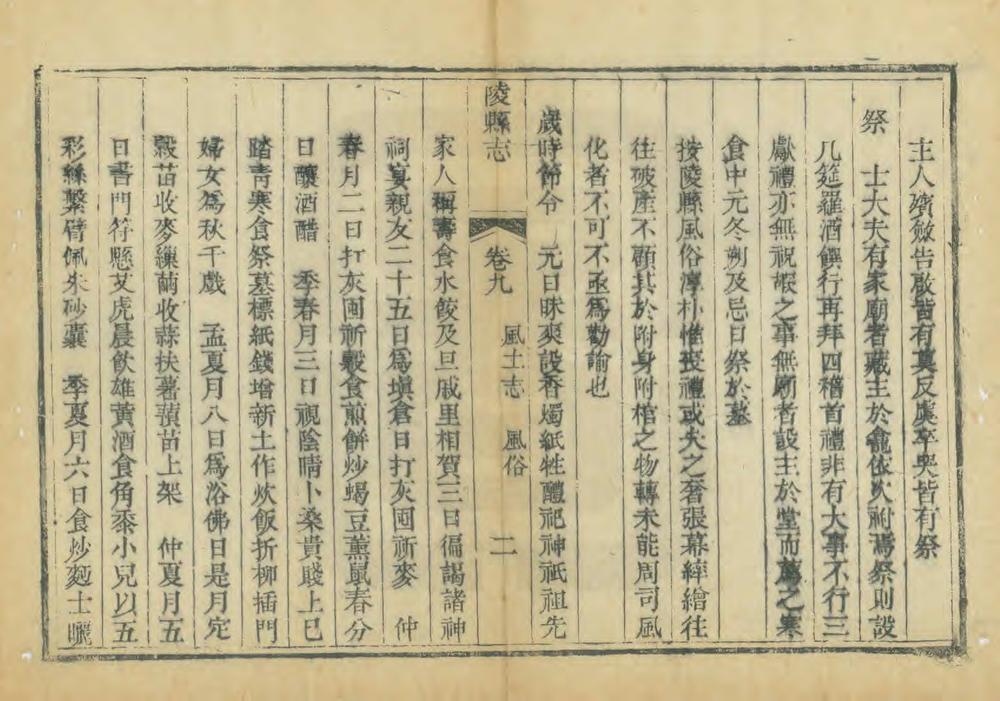 主人殯斂告啟皆有奠反虞卒哭皆有祭
祭　士大夫有家廟者藏主於龕依次祔焉祭則設
几筵羅酒饌行再拜四稽首禮非有大事不行三
獻禮亦無祝嘏之事無廟者設主於堂而薦之寒
食中元冬朔及忌日祭於墓
按陵縣風俗淳朴惟喪禮或失之奢張幕綷繪往
往破產不顧其於附身附棺之物轉未能周司風
化者不可不亟爲勸諭也
歲時節令　元日昧爽設香燭紙牲醴祀神祇祖先
陵縣志　卷九　風土志　風俗　二
家人稱壽食水餃及旦戚里相賀三日徧謁諸神
祠宴親友二十五日爲塡倉日打灰囤祈麥　仲
春月二日打灰囤祈穀食煎餅炒蝎豆薰鼠春分
日釀酒醋　季春月三日視陰晴卜桑貴賤上巳
踏靑寒食祭墓標紙錢增新土作炊飯折柳插門
婦女爲秋千戲　孟夏月八日爲浴佛日是月定
穀苗收麥繅繭收蒜扶薯蕷苗上架　仲夏月五
日書門符懸艾虎晨飲雄黃酒食角黍小兒以五
彩絲繫臂佩朱砂囊　季夏月六日食炒麪士曬